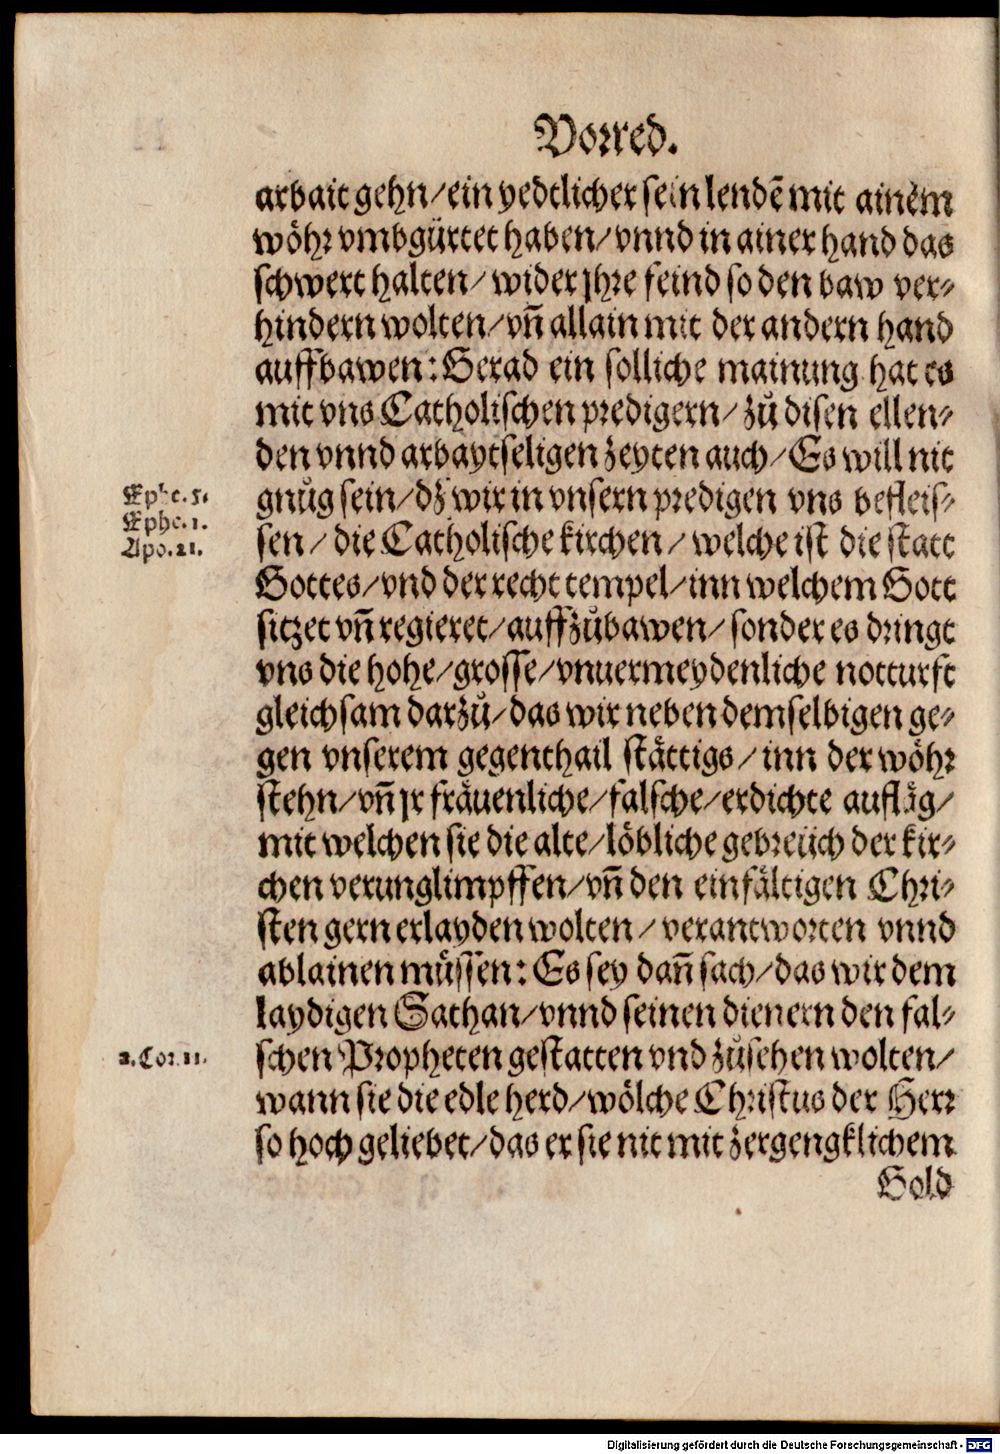 Vorred.
arbait gehn/ein yedtlicher sein lendẽ mit ainem
wöhr vmbgürtet haben/vnnd in ainer hand das
schwert halten/wider jhre feind so den baw ver-
hindern wolten/vñ allain mit der andern hand
auffbawen: Gerad ein solliche mainung hat es
mit vns Catholischen predigern/zů disen ellen-
den vnnd arbaytseligen zeyten auch/Es will nit
Ephe. 5. gnůg sein/dz wir in vnsern predigen vns befleis-
Ephe. 1.
Apo. 21. sen/die Catholische kirchen/welche ist die statt
Gottes/vnd der recht tempel/inn welchem Gott
sitzet vñ regieret/auffzůbawen/sonder es dringt
vns die hohe/grosse/vnuermeydenliche notturft
gleichsam darzů/das wir neben demselbigen ge-
gen vnserem gegenthail stättigs/inn der wöhr
stehn/vñ jr fräuenliche/falsche/erdichte aufläg/
mit welchen sie die alte/löbliche gebreüch der kir-
chen verunglimpffen/vñ den einfältigen Chri-
sten gern erlayden wolten/verantworten vnnd
ablainen müssen: Es sey dañ sach/das wir dem
laydigen Sathan/vnnd seinen dienern den fal-
2. Cor. 11. schen Propheten gestatten vnd zůsehen wolten/
wann sie die edle herd/wölche Christus der Herr
so hoch geliebet/das er sie nit mit zergengklichem
Gold
Digitalisierung gefördert durch die Deutsche Forschungsgemeinschaft - DFG